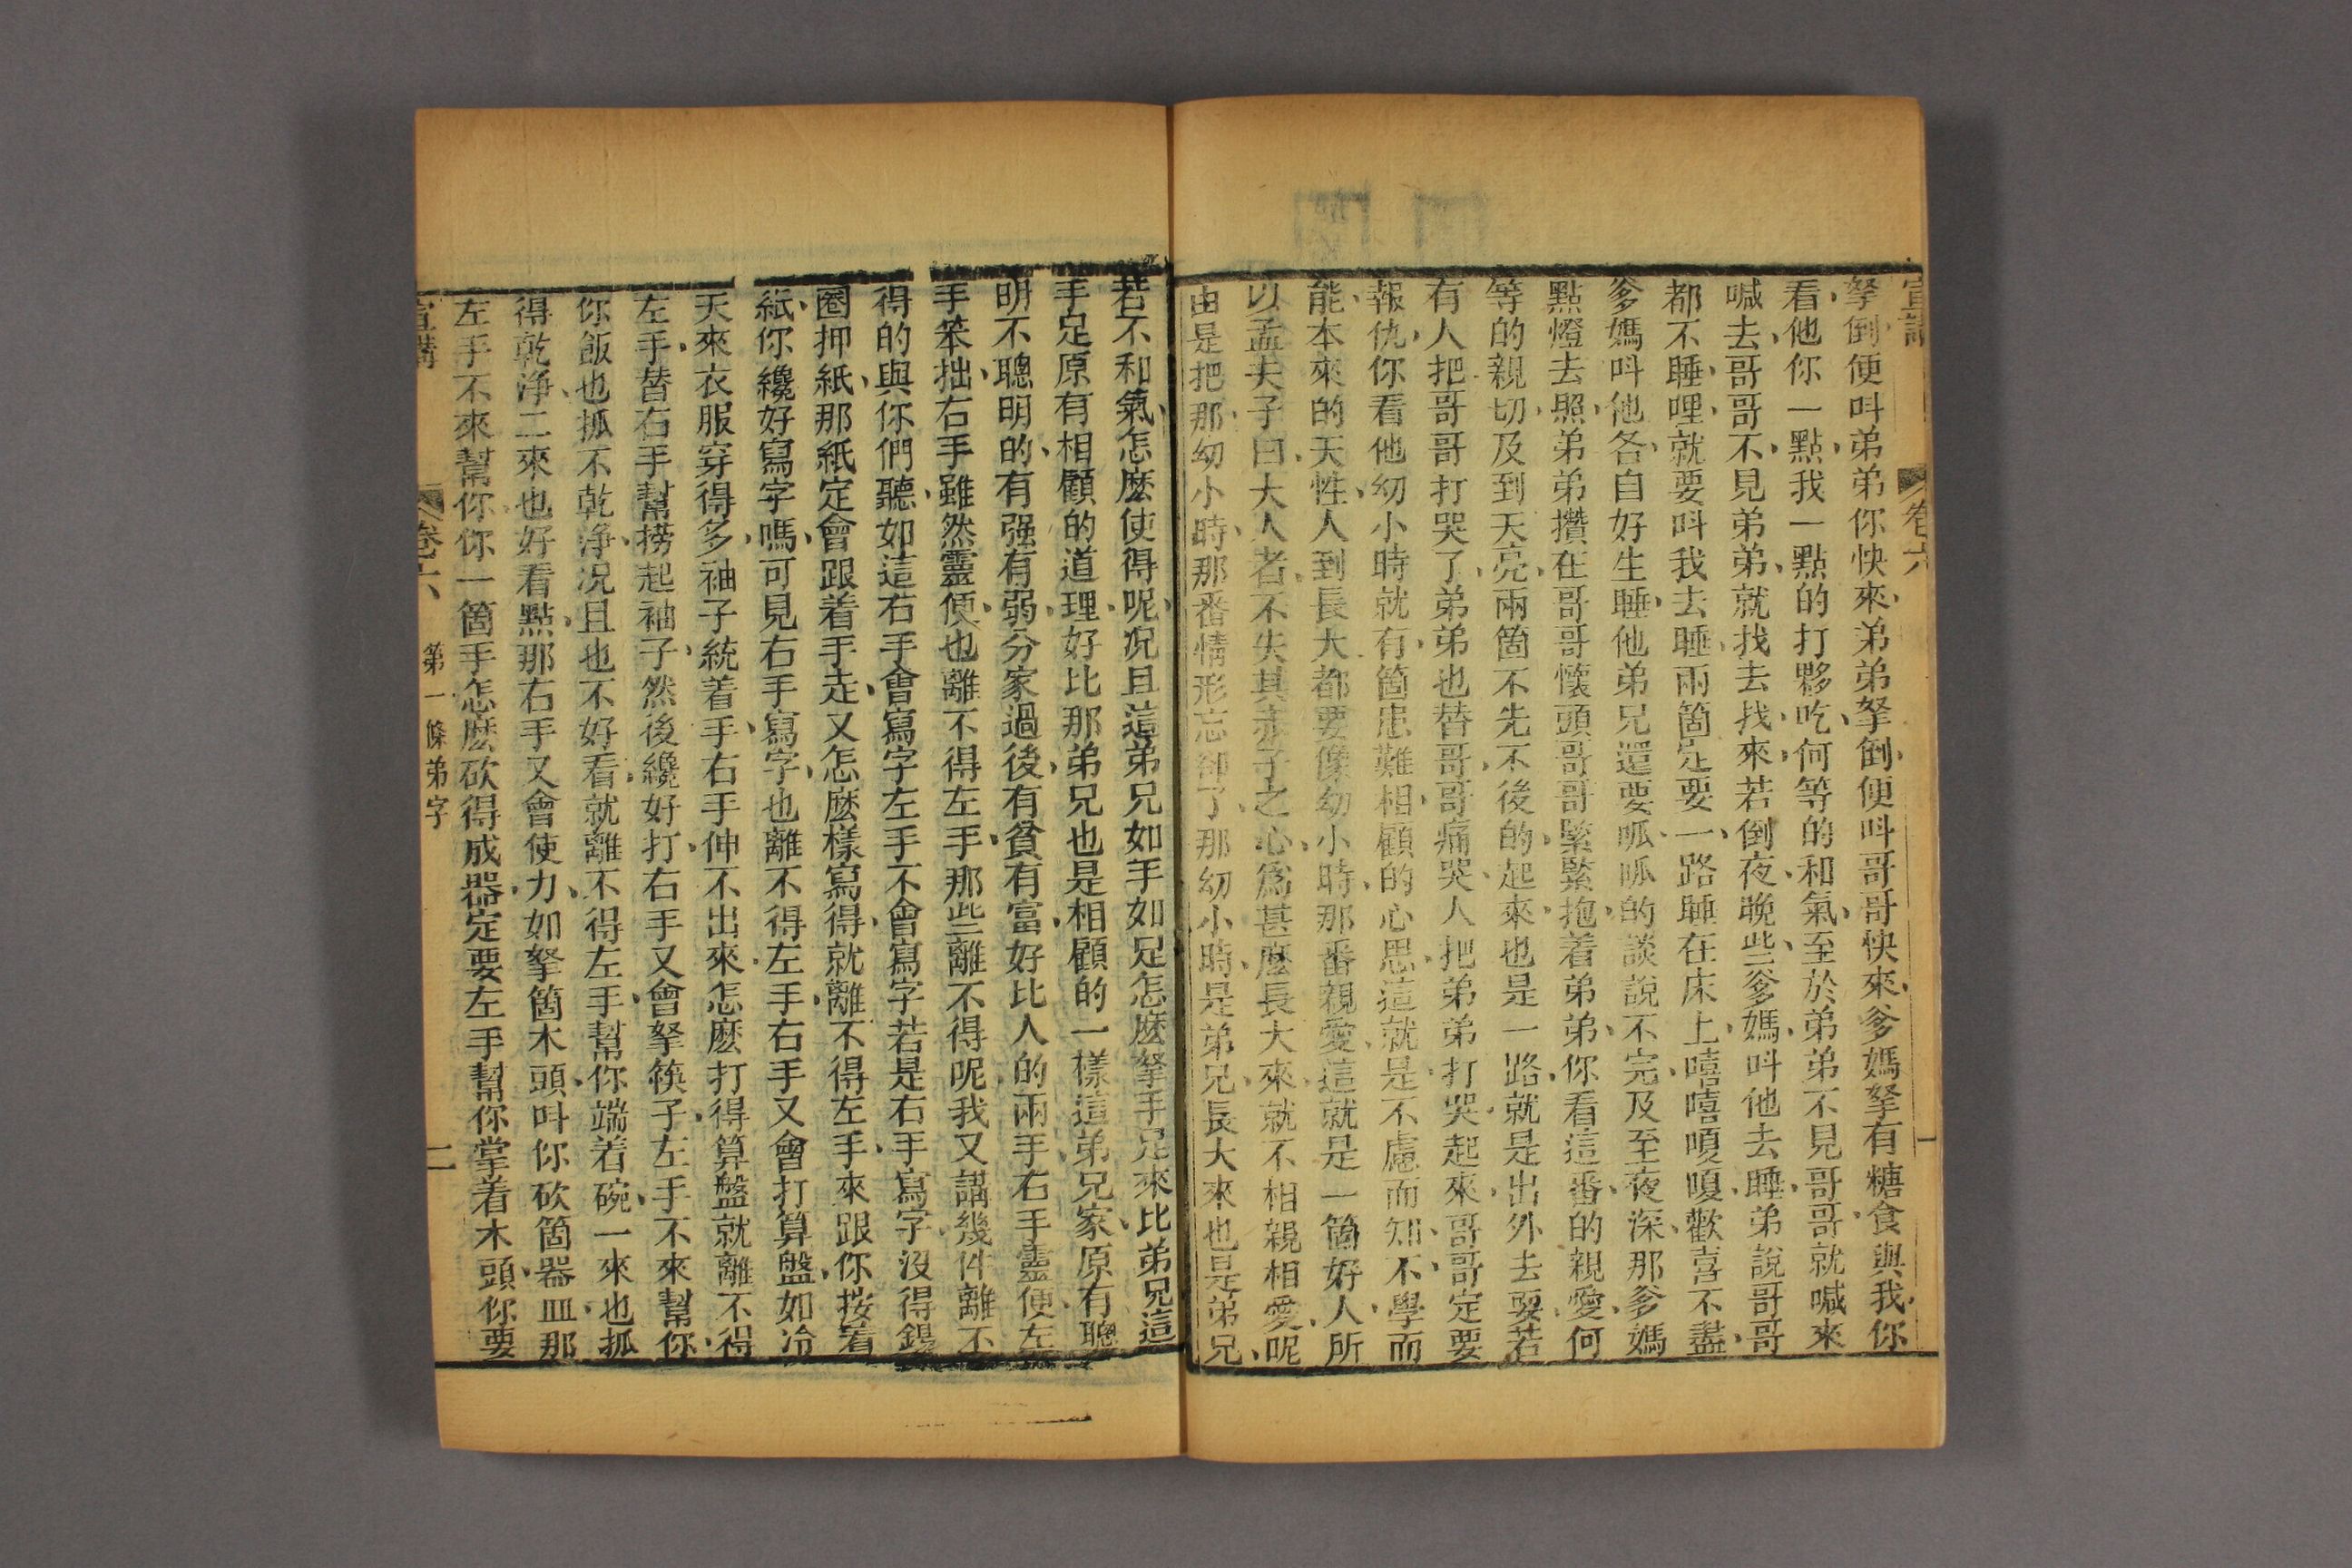 宣講
卷六
一
拏倒便呌弟弟你快來弟弟拏倒便呌哥哥快來爹媽拏有糖食與我你
看他你一點我一點的打夥吃何等的和氣至於弟弟不見哥哥就喊來
喊去哥哥不見弟弟就找去找來若倒夜晚些爹媽呌他去睡弟說哥哥
都不睡哩就要呌我去睡兩箇定要一路睡在床上嘻嘻嗄嗄歡喜不盡
爹媽呌他各自好生睡他弟兄還要呱呱的談說不完及至夜深那爹媽
點燈去照弟弟攢在哥哥懷頭哥哥緊緊抱着弟弟你看這番的親愛何
等的親切及到天亮兩箇不先不後的起來也是一路就是出外去耍若
有人把哥哥打哭了弟弟也替哥哥痛哭人把弟弟打哭起來哥哥定要
報仇你看他幼小時就有箇患難相顧的心思這就是不慮而知不學而
能本來的天性人到長大都要像幼小時那番親愛這就是一箇好人所
以孟夫子曰大人者不失其赤子之心爲甚麽長大來就不相親相愛呢
由是把那幼小時那番情形忘卻了那幼小時是弟兄長大來也是弟兄
若不和氣怎麽使得呢况且這弟兄如手如足怎麽拏手足來比弟兄這
手足原有相顧的道理好比那弟兄也是相顧的一樣這弟兄家原有聰
明不聰明的有强有弱分家過後有貧有富好比人的兩手右手靈便左
手笨拙右手雖然靈便也離不得左手那些離不得呢我又講幾件離不
得的與你們聽如這右手會寫字左手不會寫字若是右手寫字沒得錫
圈押紙那紙定會跟着手走又怎麽樣寫得就離不得左手來跟你按着
紙你纔好寫字嗎可見右手寫字也離不得左手右手又會打算盤如冷
天來衣服穿得多袖子統着手右手伸不出來怎麽打得算盤就離不得
左手替右手幫撈起袖子然後纔好打右手又會拏筷子左手不來幫你
你飯也抓不乾淨况且也不好看就離不得左手幫你端着碗一來也抓
得乾淨二來也好看點那右手又會使力如拏箇木頭呌你砍箇器皿那
左手不來幫你你一箇手怎麽砍得成器定要左手幫你掌着木頭你要
宣講
卷六
第一條弟字
二